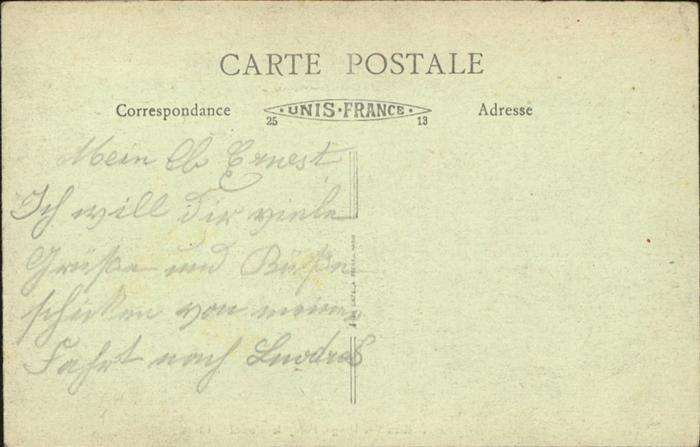 CARTE POSTALE
Correspondance
UNIS·FRANCE
25 13
Adresse
Mein lb Ernest
Ich will dir viele
Grüße und
schicken von meiner
Fahrt nach